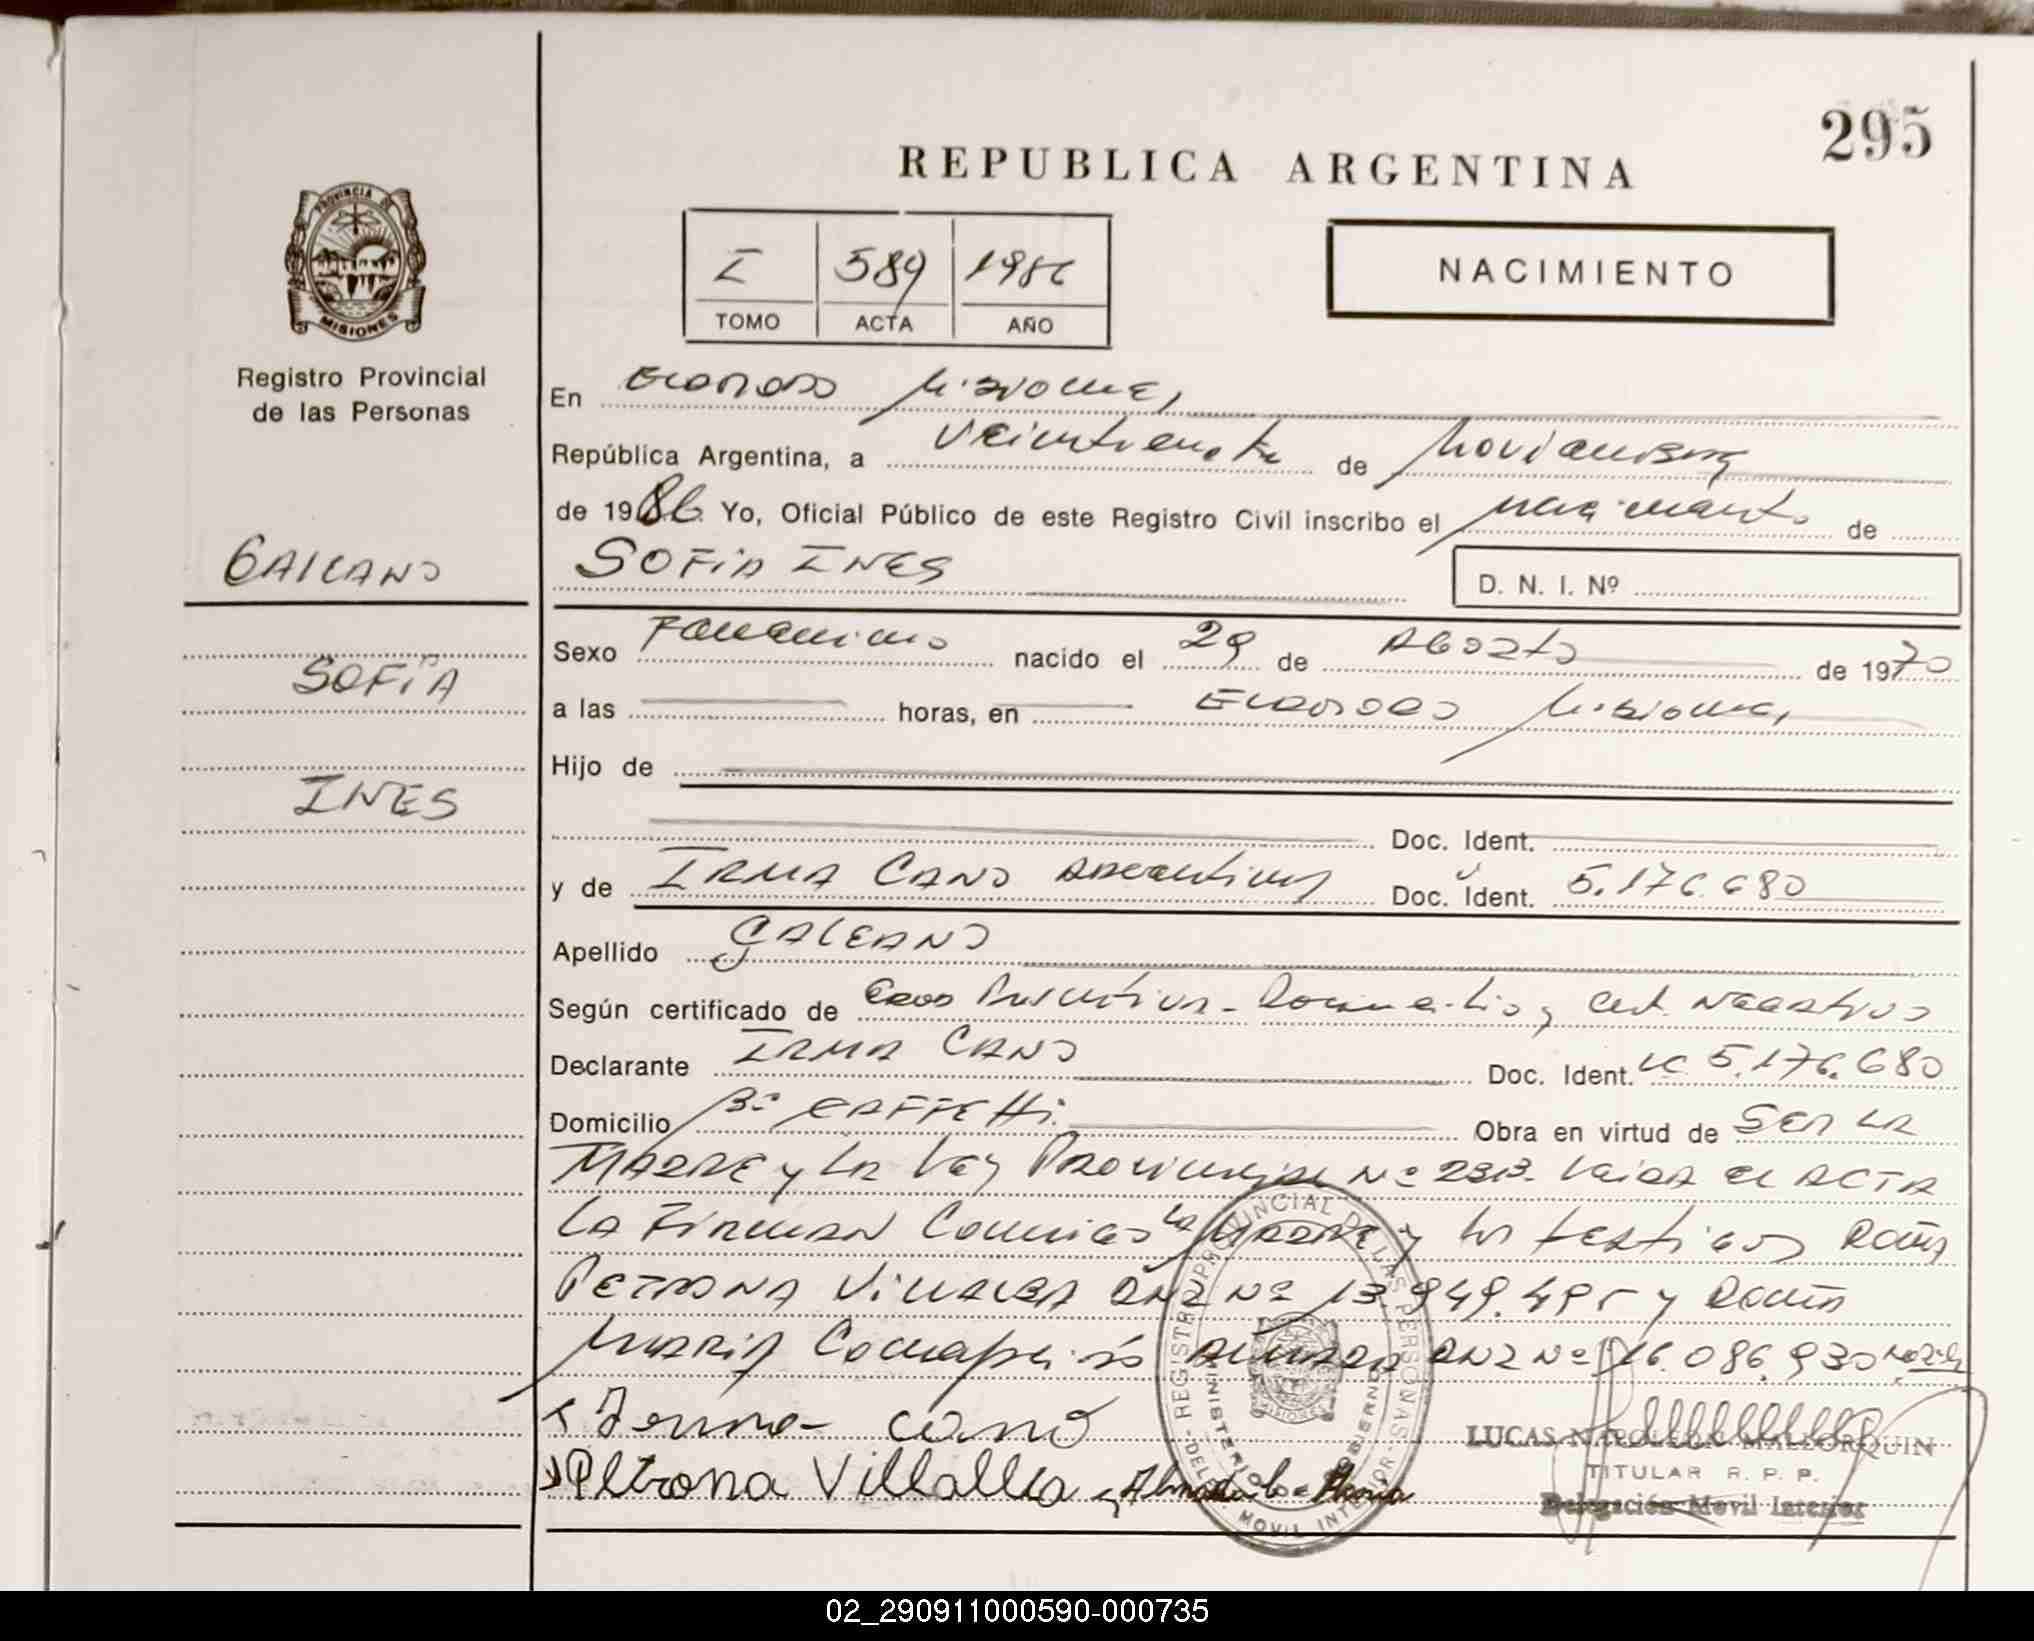 295
REPUBLICA ARGENTINA
I 589 1986
TOMO ACTA AÑO
NACIMIENTO
PROVINCIA DE
MISIONES
Registro Provincial
de las Personas
En Eldorado Misiones,
República Argentina, a de Noviembre
de 1986 Yo, Oficial Público de este Registro Civil inscribo el nacimiento de
GALEANO
SOFIA INES
D. N. I. Nº
SOFÍA
INES
Sexo Femenino nacido el 29 de Agosto de 1970
a las horas, en Eldorado Misiones,
Hijo de
Doc. Ident.
y de IRMA CANO Argentina Doc. Ident. 5.176.680
Apellido GALEANO
Según certificado de Negativo
Declarante IRMA CANO Doc. Ident. LC 5.176.680
Domicilio Bº Obra en virtud de SER LA
MADRE y LA Ley Provincial Nº Leida el ACTA
LA Firman Conmigo la MADRE y los testigos Doña
PETRONA VILLALBA DNI Nº 13.949.495 y Doña
MARIA DNI Nº 16.086.930
Irma cano
Petrona Villalba
REGISTRO PROVINCIAL DE LAS PERSONAS
MINISTERIO GOBIERNO
DELEG MOVIL INTERIOR
LUCAS NAPOLEON MALLORQUIN
TITULAR R. P. P.
Delegación Movil Interior
02_290911000590-000735